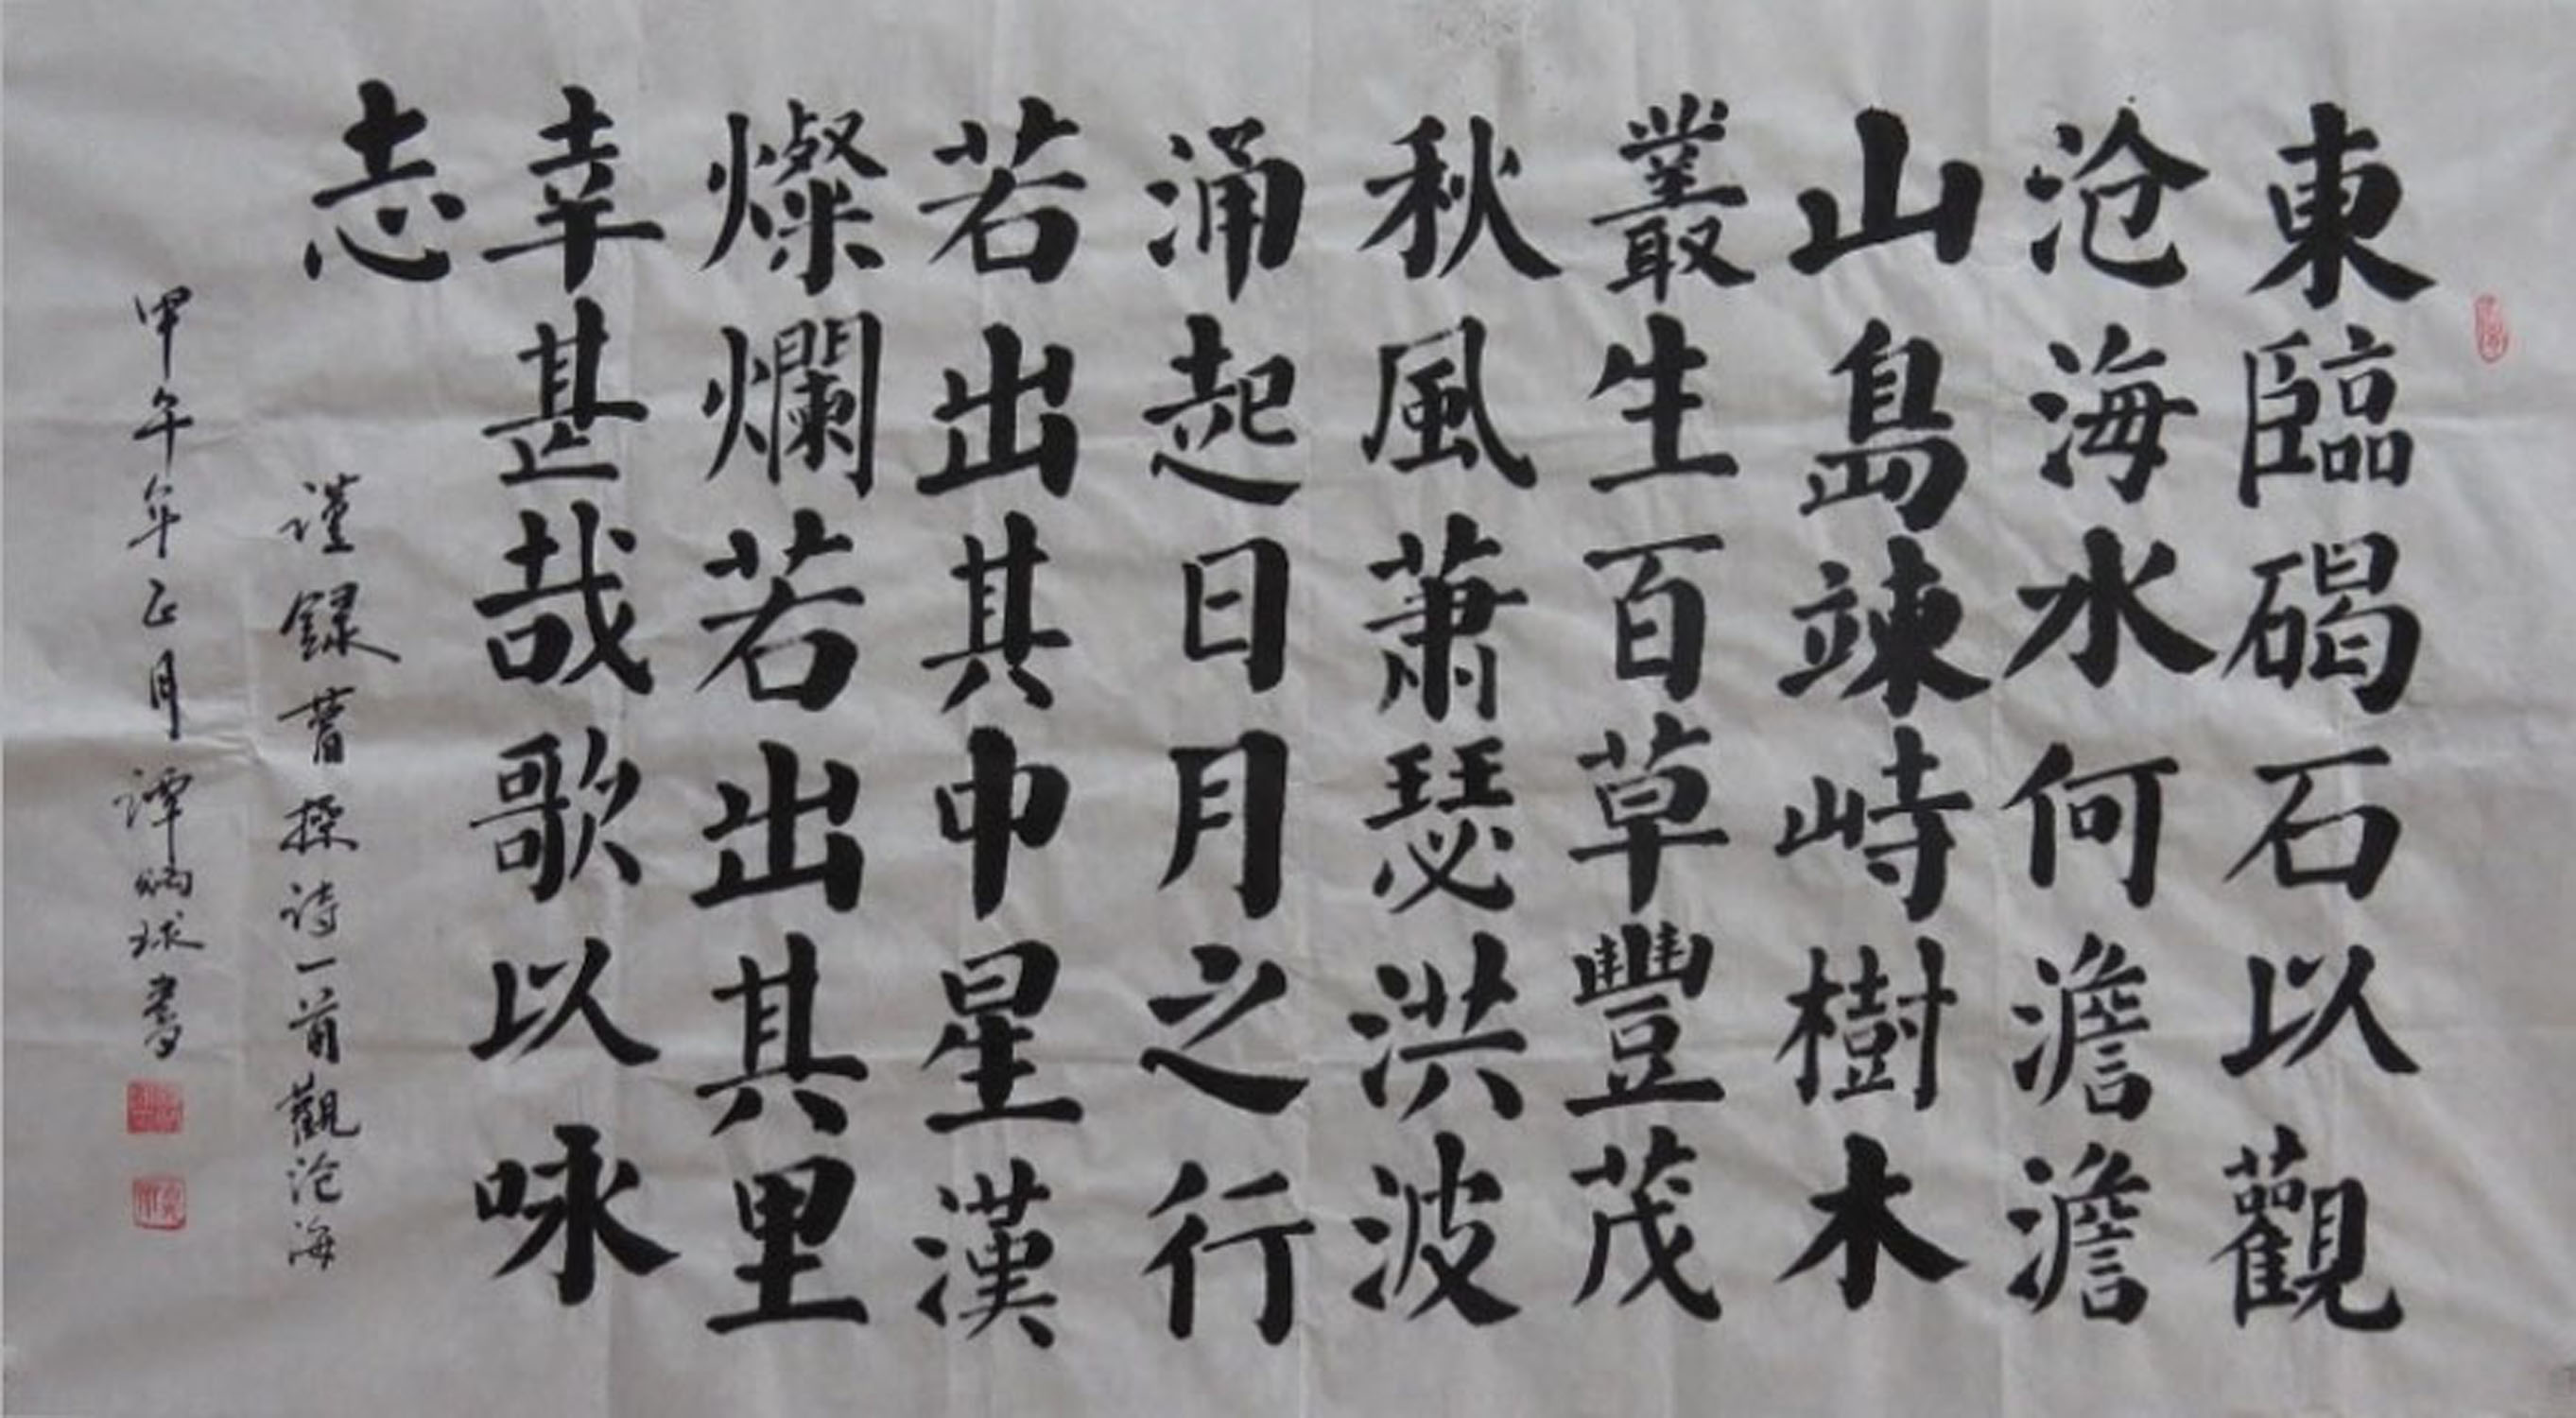 東臨碣石以觀
沧海水何澹澹
山島竦峙樹木
叢生百草豐茂
秋風蕭瑟洪波
涌起日月之行
若出其中星漢
燦爛若出其里
幸甚哉歌以咏
志
谨録曹操诗一首觀沧海
甲午年正月谭炳球書